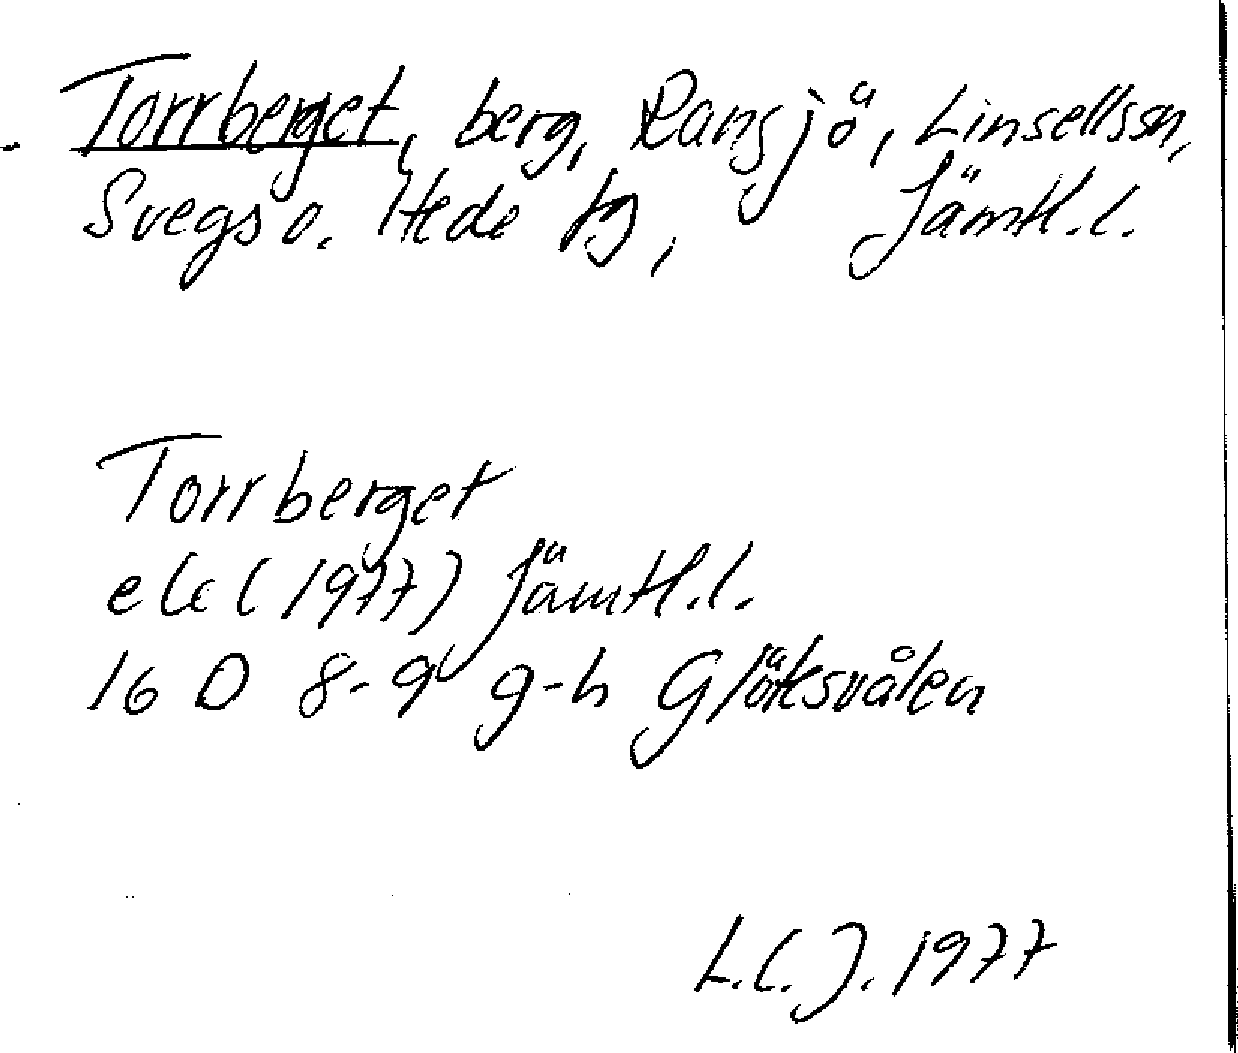 Torrberget, berg, Ransjö, Linsellssn,
Svegs o. Hede tg, Jämtl.l.
Torrberget
ek (1977) Jämtl.l.
16 D 8-9 g-h Glötesvålen
L.C.J. 1977